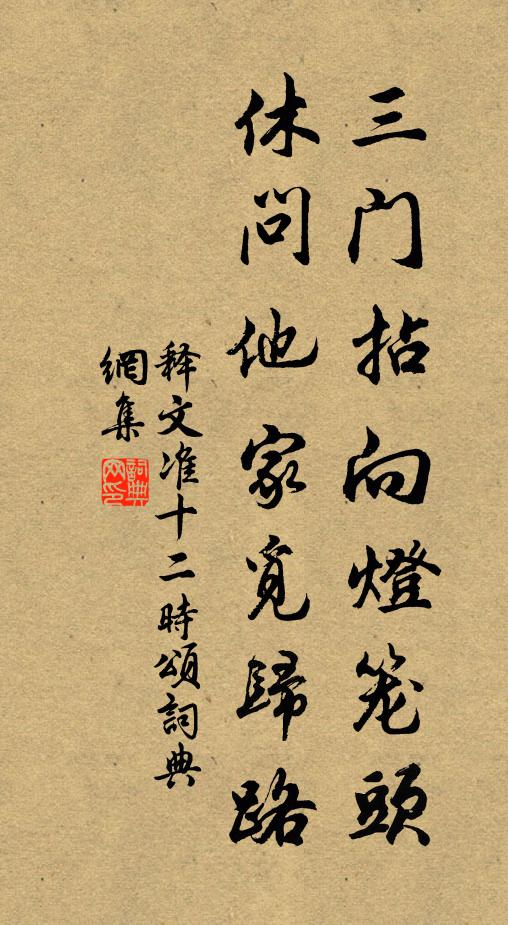 三门拈向燈笼頭
休問他家覓歸路
释文准十二時頌詞典
網集
詞典
网印